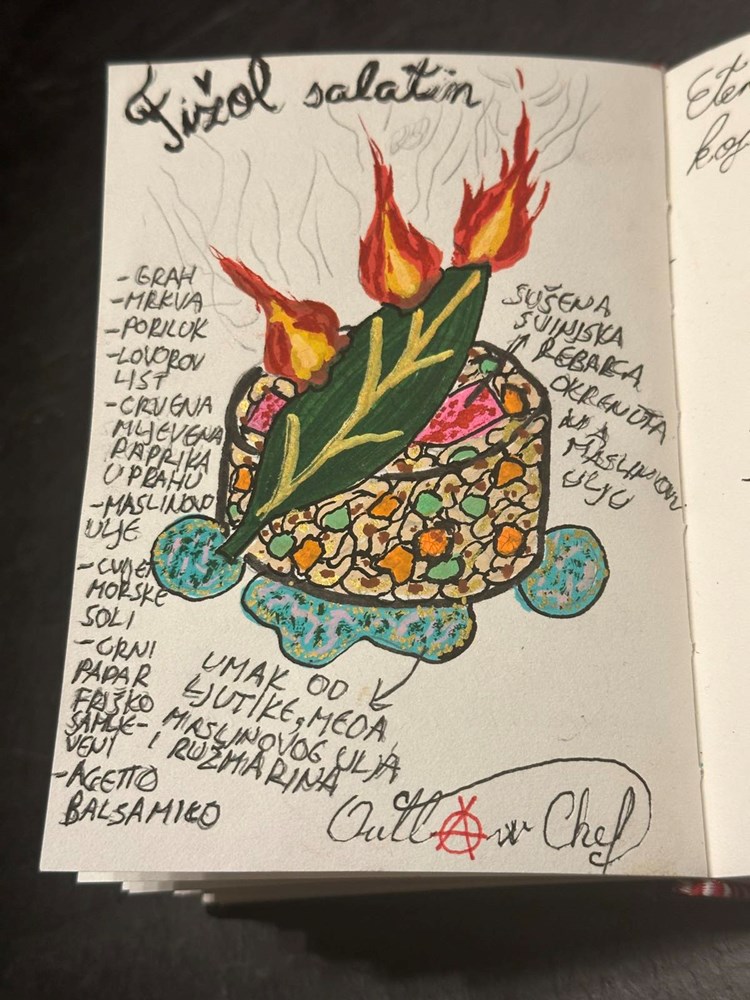 Fižol salatin
- GRAH
- MRKVA
- PORILUK
- LOVOROV
LIST
- CRVENA
MLJEVENA
PAPRIKA
U PRAHU
- MASLINOVO
ULJE
- CVIJET
MORSKE
SOLI
- CRNI
PAPAR
FRIŠKO
SAMLJE-
VENI
- ACETTO
BALSAMICO
SUŠENA
SVINJSKA
REBARCA
OKRENUTA
NA
MASLINOVOM
ULJU
UMAK OD
LJUTIKE, MEDA
MASLINOVOG ULJA
I RUŽMARINA
OutlAw Chef